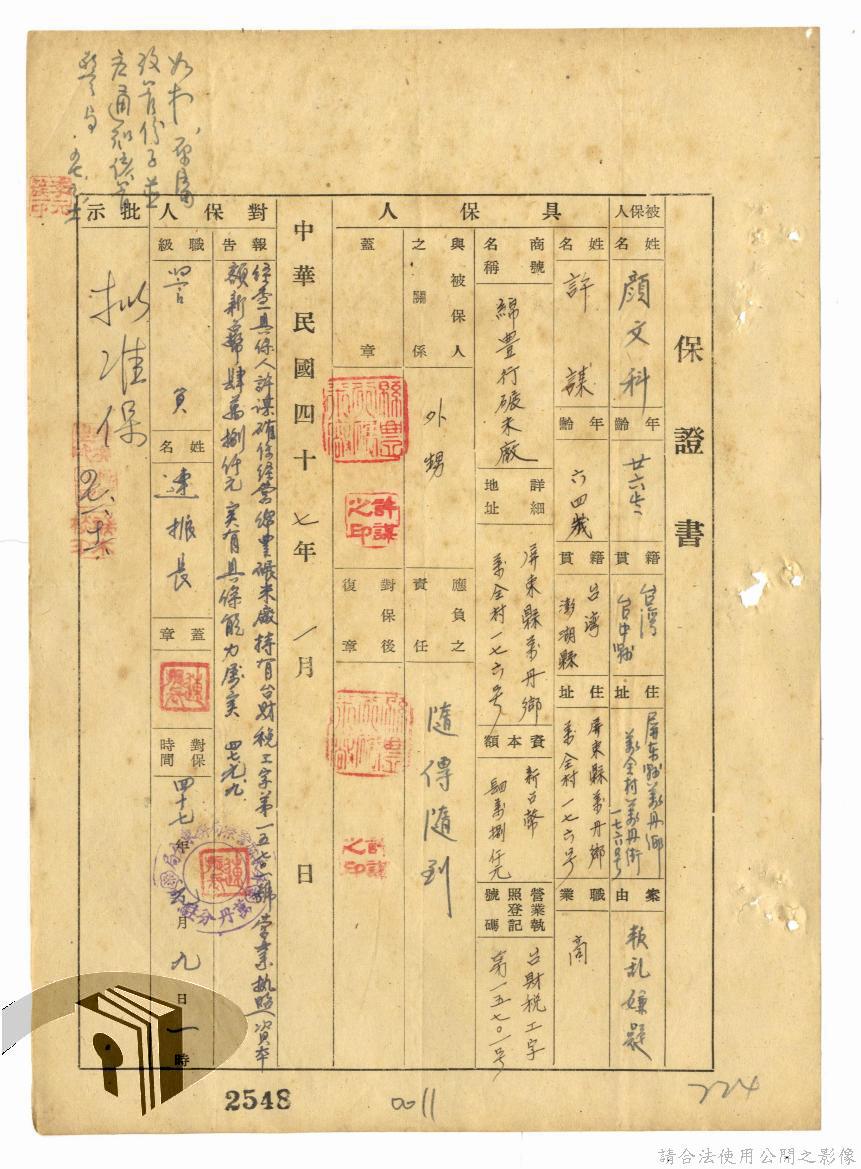 保證書
被保人
姓名 顏文科
年齡 廿六歲
籍貫 台灣台中縣
住址 屏東縣萬丹鄉萬全村萬丹街一七六号
案由 叛乱嫌疑
具保人
姓名 許謀
年齡 六四歲
籍貫 台湾澎湖縣
住址 屏東縣萬丹鄉萬全村一七六号
職業 商
商號名稱 綿豊行碾米廠
詳細地址 屏東縣萬丹鄉萬全村一七六号
資本額 新台幣肆萬捌仟元
營業執照登記號碼 台財稅工字第一五七〇一号
與被保人之關係 外甥
應負之責任 隨傳隨到
蓋章
許謀之印
對保後復章
許謀之印
中華民國四十七年 月 日
對保人
報告 經查具保人許謀確係經營綿豊碾米廠持有台財稅工字第一五七〇一號營業執照資本
額新台幣肆萬捌仟元實有具保能力屬实 四七、六、九
職級 警員
姓名 連振長
蓋章
對保時間 四十七年六月九日一時
批示
擬准保
2548
0011
224
請合法使用公開之影像